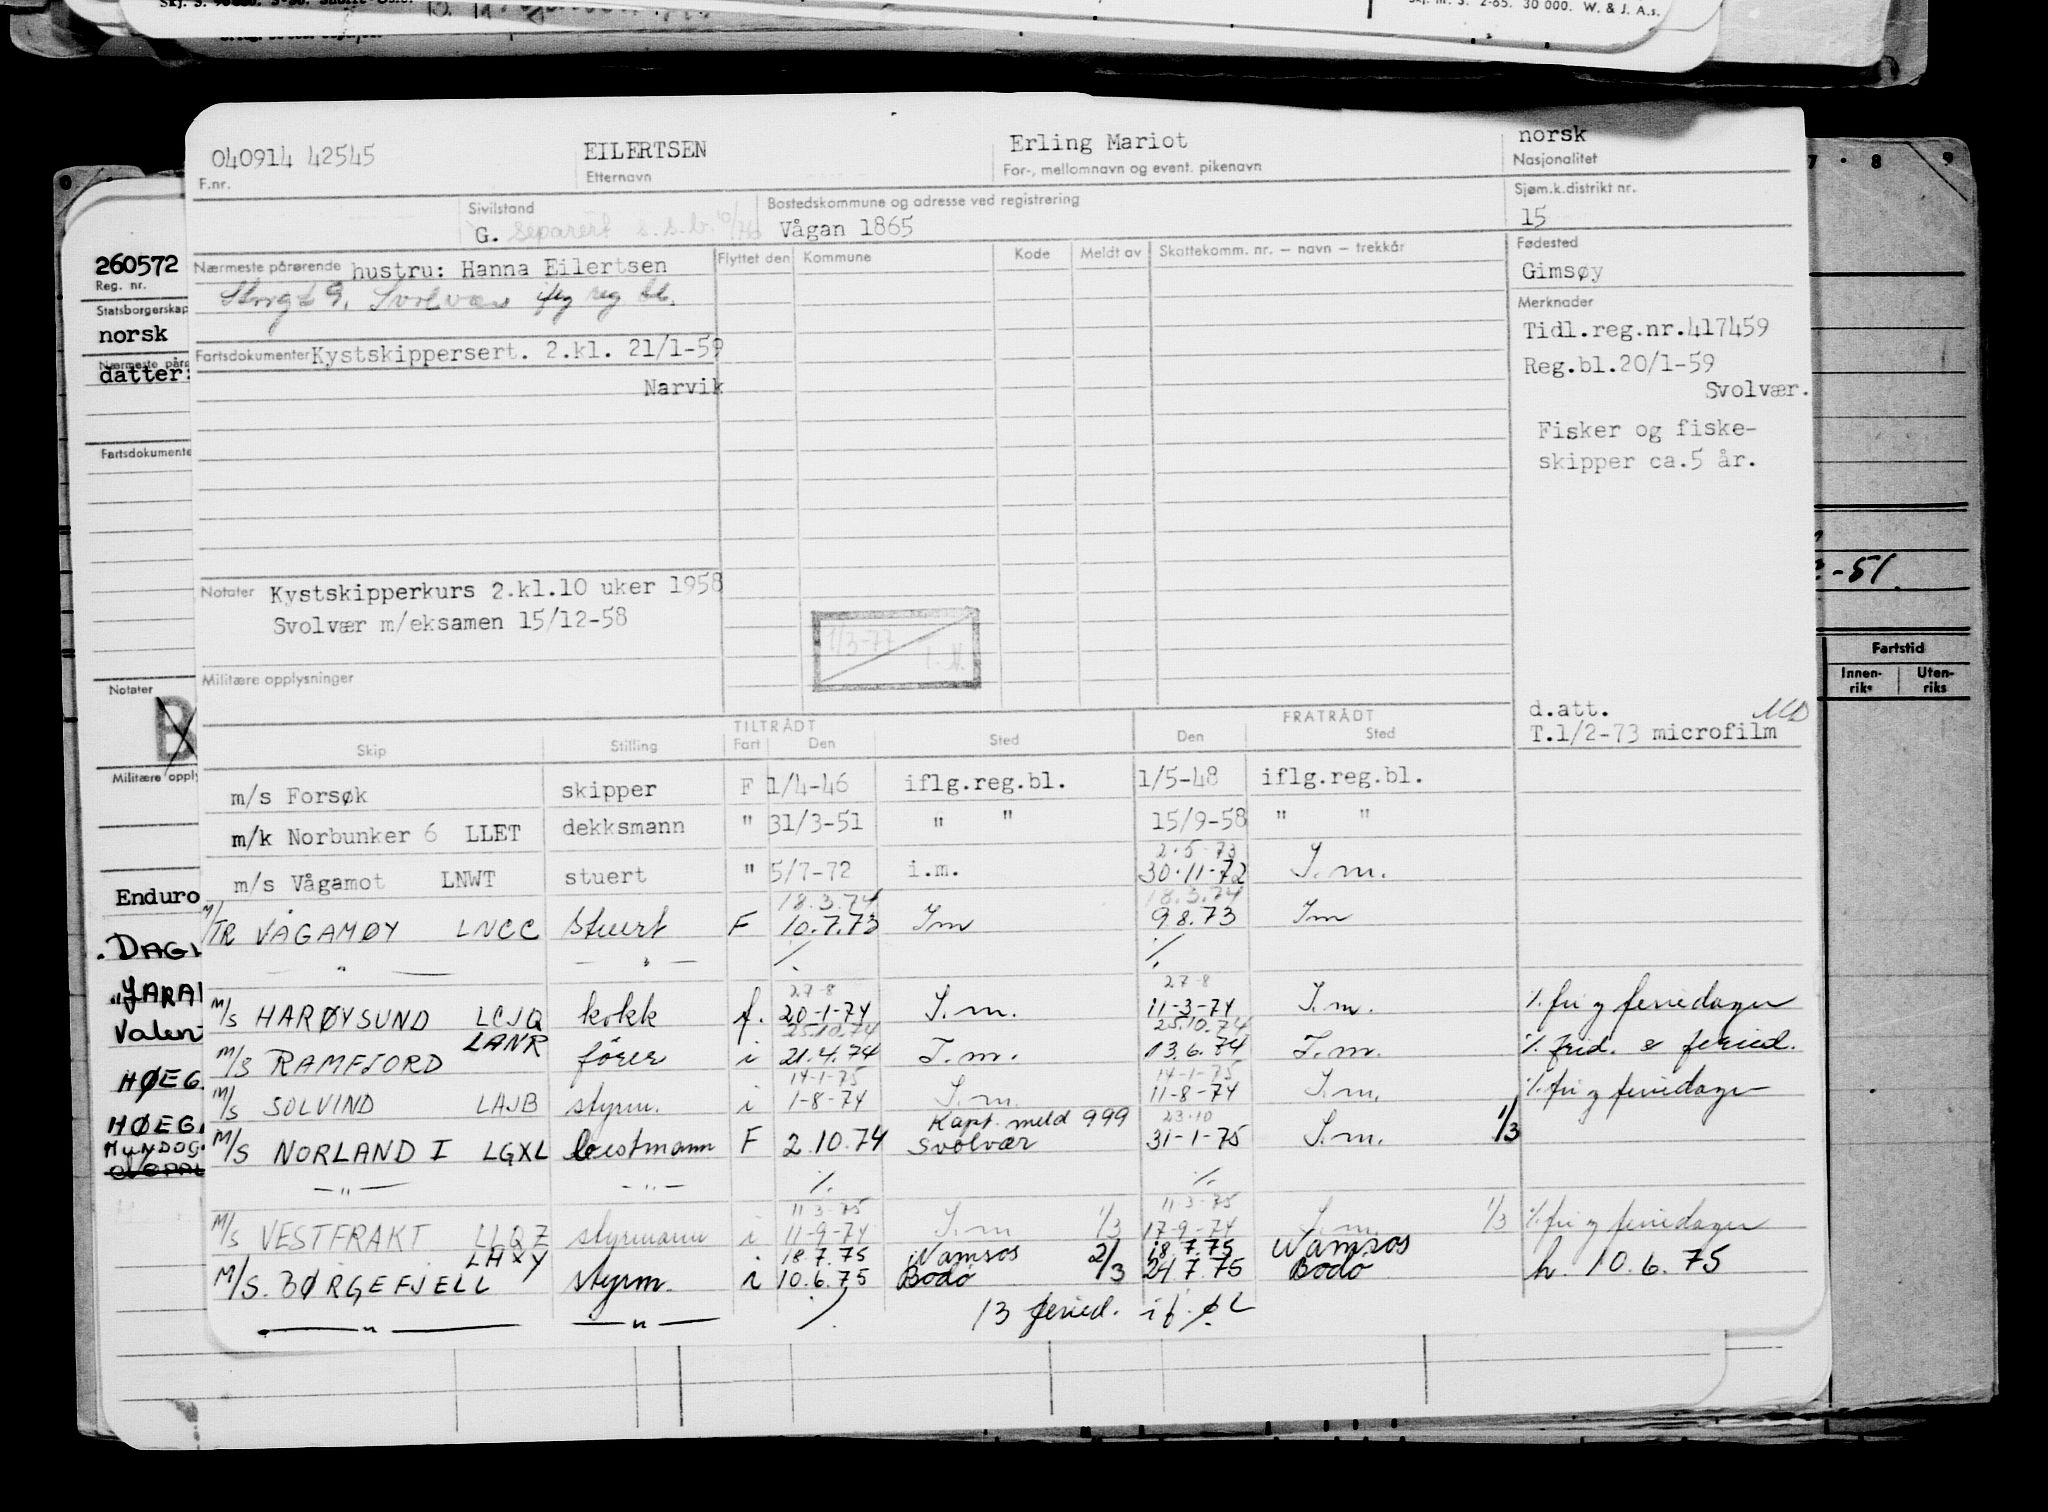 Skj. m. s. 2-65. 30 000. W. & J. A.s.
040914 42545 EILERTSEN Erling Mariot norsk
F.nr. Etternavn For-, mellomnavn og event. pikenavn Nasjonalitet
Sivilstand Bostedskommune og adresse ved registrering Sjøm.k.distrikt nr.
G. Separert s.s.b. 10/76 Vågan 1865 15
Nærmeste pårørende hustru: Hanna Eilertsen Flyttet den Kommune Kode Meldt av Skattekomm. nr. — navn — trekkår Fødested
Gimsøy
Storgt 9, Svolvær iflg reg bl.
Merknader
Tidl.reg.nr.417459
Fartsdokumenter Kystskippersert. 2.kl. 21/1-59 Reg.bl.20/1-59
Narvik Svolvær.
Fisker og fiske-
skipper ca.5 år.
Notater Kystskipperkurs 2.kl.10 uker 1958
Svolvær m/eksamen 15/12-58
1/3-77
Militære opplysninger
d.att. MD
T.1/2-73 microfilm
TILTRÅDT FRATRÅDT
Skip Stilling Fart Den Sted Den Sted
m/s Forsøk skipper F 1/4-46 iflg.reg.bl. 1/5-48 iflg.reg.bl.
m/k Norbunker 6 LLET dekksmann " 31/3-51 " " 15/9-58 " "
2.5.73
m/s Vågamot LNWT stuert " 5/7-72 i.m. 30.11-72 I.m.
18.3.74 18.3.74
M/TR VÅGAMØY LNCC Stuert F 10.7.73 Im 9.8.73 Im
— " — — " — ./. ./.
27-8 27-8
M/S HARØYSUND LCJQ kokk f. 20-1-74 I.m. 11-3-74 I.m. ./. fri og feriedager
LANR 25.10.74 25.10.74
M/S RAMFJORD fører i 21.4.74 I.m. 13.6.74 I.m. ./. frid. & feried.
14-1-75 14-1-75
M/S SOLVIND LAJB styrm. i 1-8-74 I.m. 11-8-74 I.m. ./. fri og feriedager
Kapt. meld 999 23.10
M/S NORLAND I LGXL bestmann F 2.10.74 Svolvær 31-1-75 I.m. 1/3
— " — — " — ./. ./.
11-3-75 11-3-75
M/S VESTFRAKT LLQZ styrmann i 11-9-74 I.m 1/3 17-9-74 I.m. 1/3 ./. fri og feriedager
LHXY 18.7.75 Namsos 2/3 18.7.75 Namsos
M/S. BØRGEFJELL styrm. i 10.6.75 Bodø 24.7.75 Bodø h. 10.6.75
— " — — " — ./. 13 feried.
260572
Reg. nr.
Statsborgerskap
norsk
datter:
Fartsdokumente
Notater
B
Militære opply
Enduro
DAGL
Valen
HØEG
HØEG
2-51.
Fartstid
Innen-riks Uten-riks
7 8 9